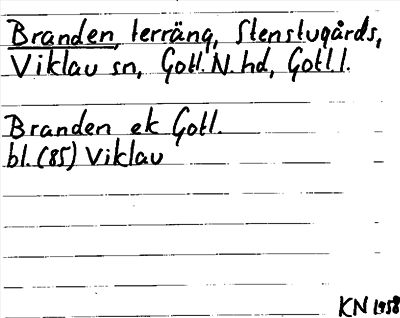 Branden, terräng, Stenstugårds,
Viklau sn, Gotl. N. hd, Gotl. l.
Branden ek Gotl.
bl. (85) Viklau
KN 1958